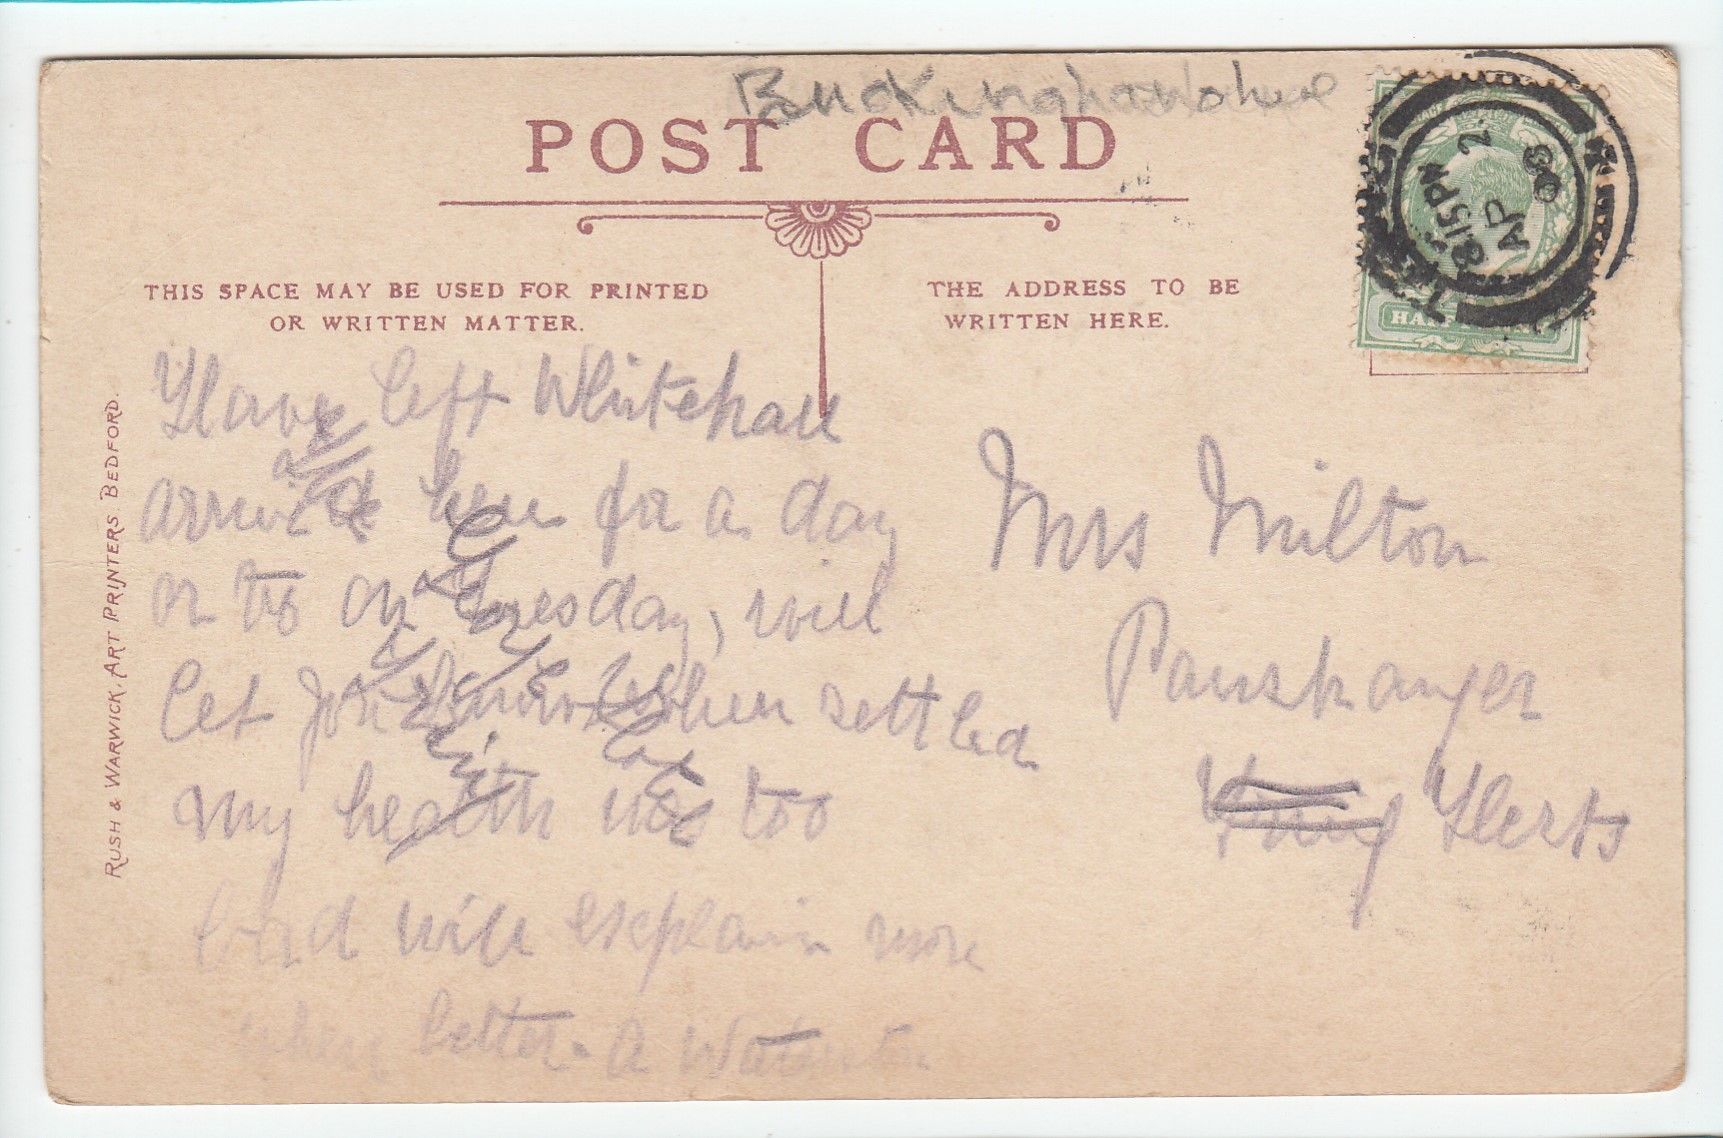 Buckinghamshire
POST CARD
THIS SPACE MAY BE USED FOR PRINTED
OR WRITTEN MATTER.
THE ADDRESS TO BE
WRITTEN HERE.
RUSH & WARWICK, ART PRINTERS BEDFORD.
8.15 PM
AP 2
06
HALF
Have left Whitehall
arrived here for a day
or to on Tuesday, will
let you know when settled
my health is too
bad will explain more
when better. A
Mrs Milton
Panshanger
Herts